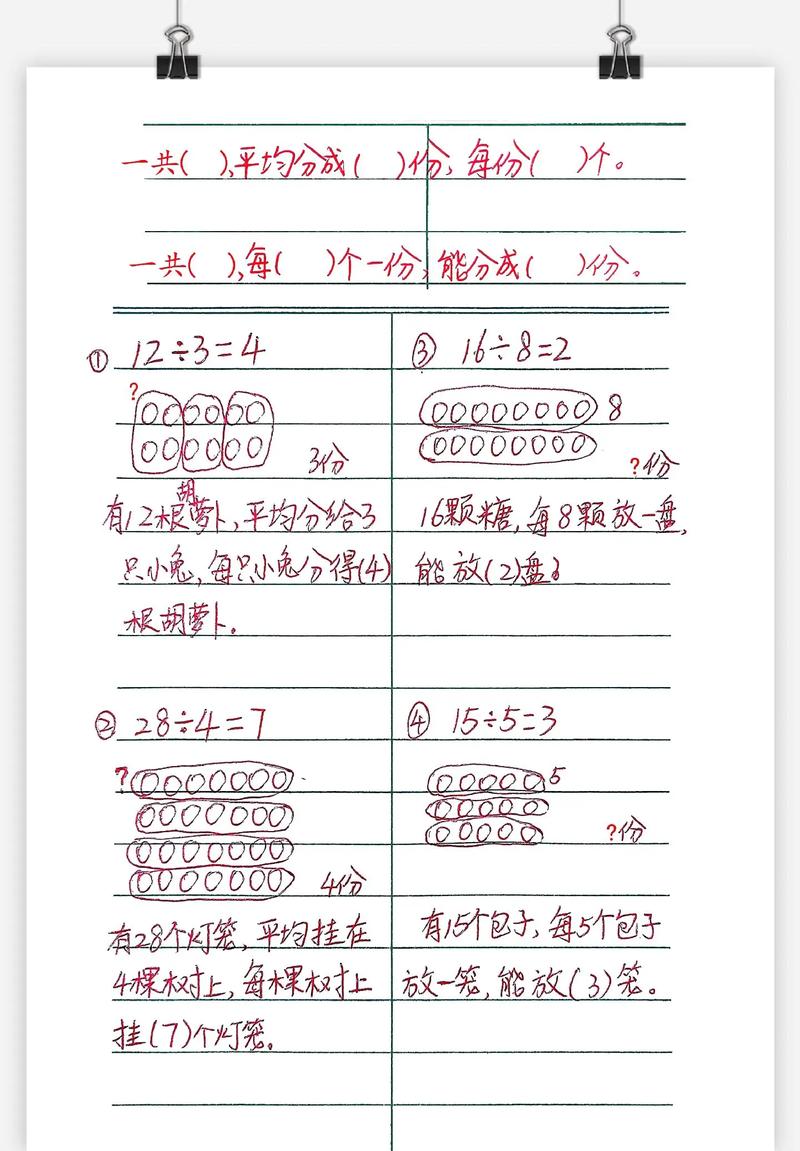 一共( ),平均分成( )份,每份( )个。
一共( ),每( )个一份,能分成( )份。
① 12÷3=4
?
3份
有12根胡萝卜,平均分给3
只小兔,每只小兔分得(4)
根胡萝卜。
② 28÷4=7
?
4份
有28个灯笼,平均挂在
4棵树上,每棵树上
挂(7)个灯笼。
③ 16÷8=2
8
?份
16颗糖,每8颗放一盘,
能放(2)盘。
④ 15÷5=3
5
?份
有15个包子,每5个包子
放一笼,能放(3)笼。